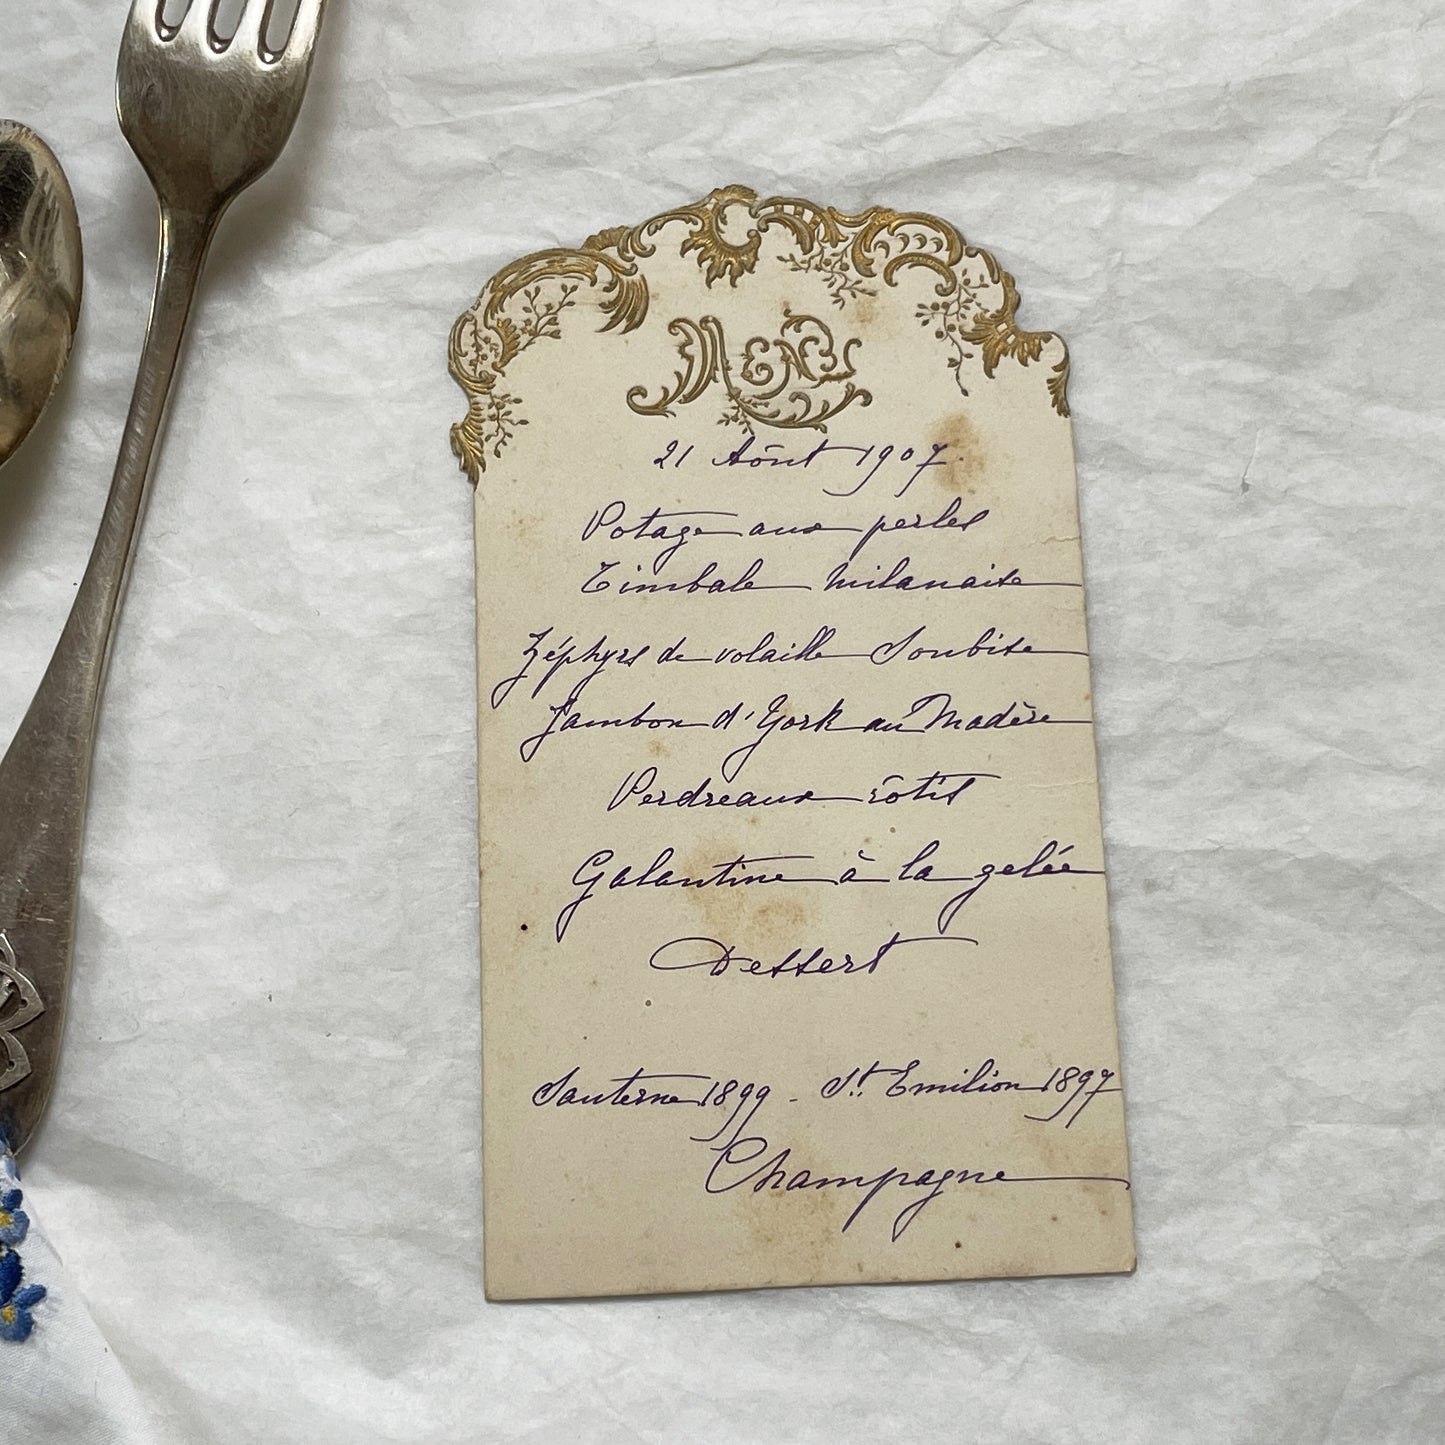 MENU
21 Août 1907.
Potage aux perles
Timbale milanaise
Zéphyrs de volaille Soubise
Jambon d'York au Madère
Perdreaux rôtis
Galantine à la gelée
Dessert
Sauterne 1899 - St. Emilion 1897
Champagne